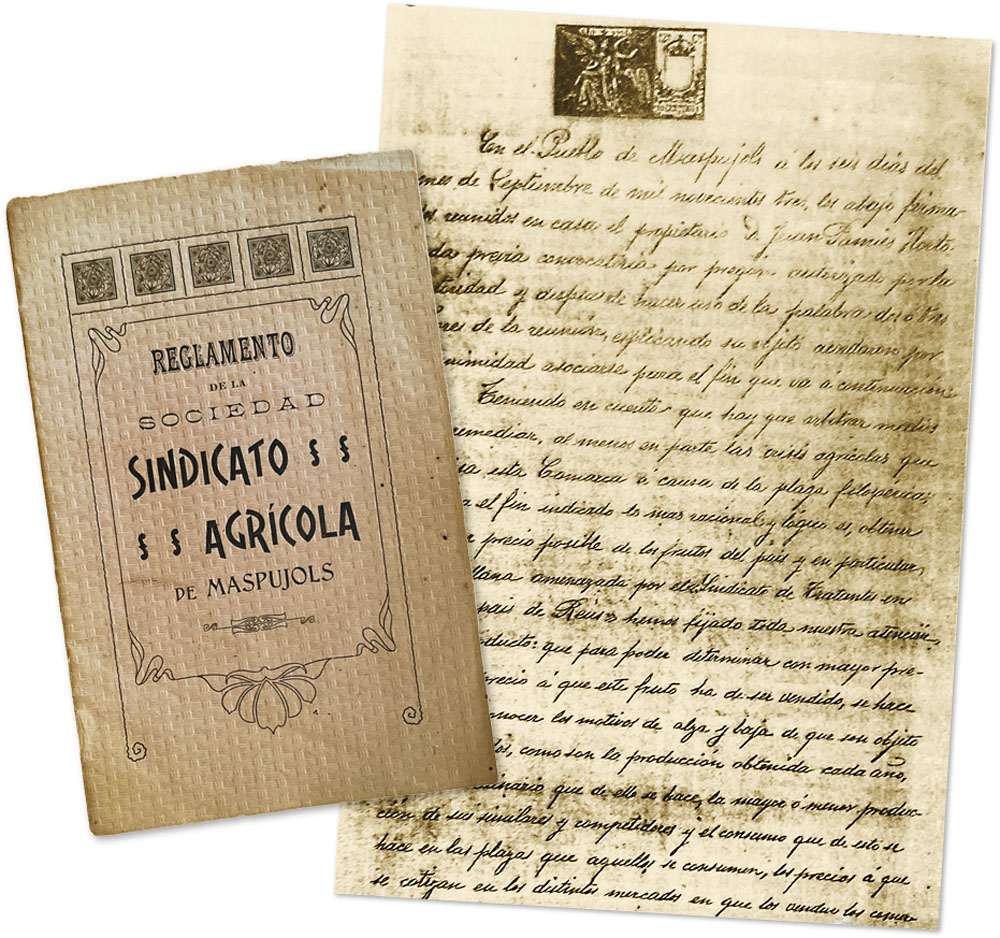 REGLAMENTO
DE LA
SOCIEDAD
SINDICATO § §
§ § AGRÍCOLA
DE MASPUJOLS
En el Pueblo de Maspujols á los seis días del
mes de Septiembre de mil novecientos tres, los abajo firma-
reunidos en casa el propietario D. Juan Pamies
da previa convocatoria por pregon autorizado por la
y despues de hacer uso de la palabra dos ó tres
res de la reunión, esplicando su objeto acordaron por
nimidad asociarse para el fin que va á continuación:
Teniendo en cuenta que hay que arbitrar medios
remediar, al menos en parte las crisis agrícolas que
sa esta Comarca á causa de la plaga filoxerica;
a el fin indicado lo mas racional y lógico es, obtener
r precio posible de los frutos del país y en particular,
llana amenazada por el Sindicato de Tratantes en
pais de Reus; hemos fijado toda nuestra atención,
ducto: que para poder determinar con mayor pre-
precio á que este fruto ha de ser vendido, se hace
nocer los motivos de alza y baja de que son objeto
dos, como son la producción obtenida cada año,
dinario que de ello se hace, la mayor ó menor produc-
ción de sus similares y competidores y el consumo que de esto se
hace en las plazas que aquellos se consumen, los precios á que
se cotizan en los distintos mercados en que los venden los comer-